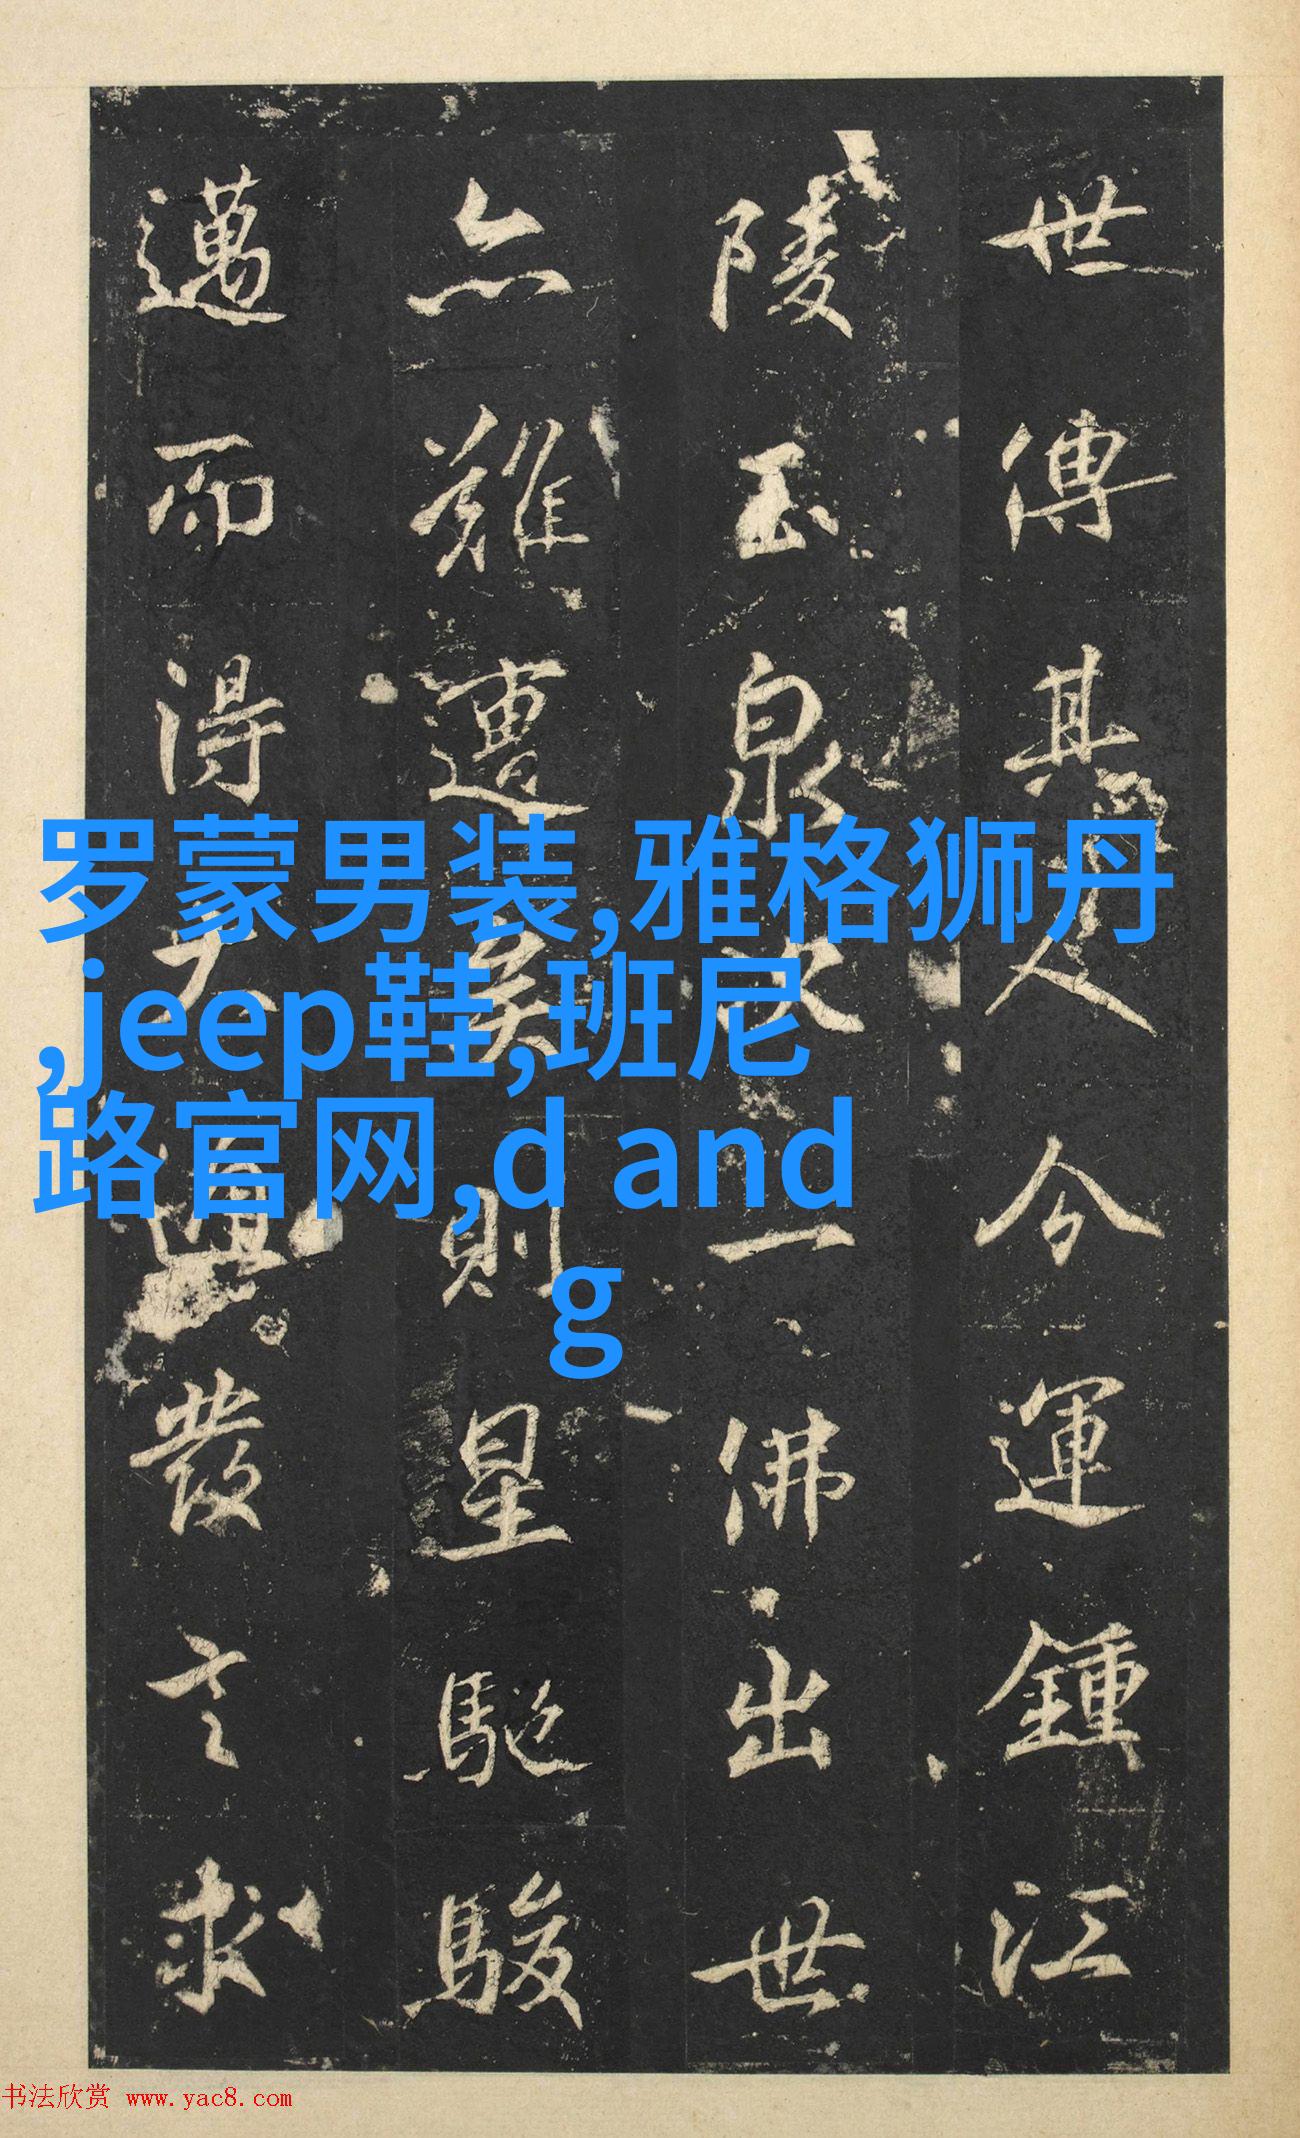 罗蒙男装,雅格狮丹
,jeep鞋,班尼
路官网,d and
g
世傳其人今運鍾江
陵玉泉次一佛出世
亦難遭矣則星馳駿
邁而得大通發言求
书法欣赏 www.yac8.com